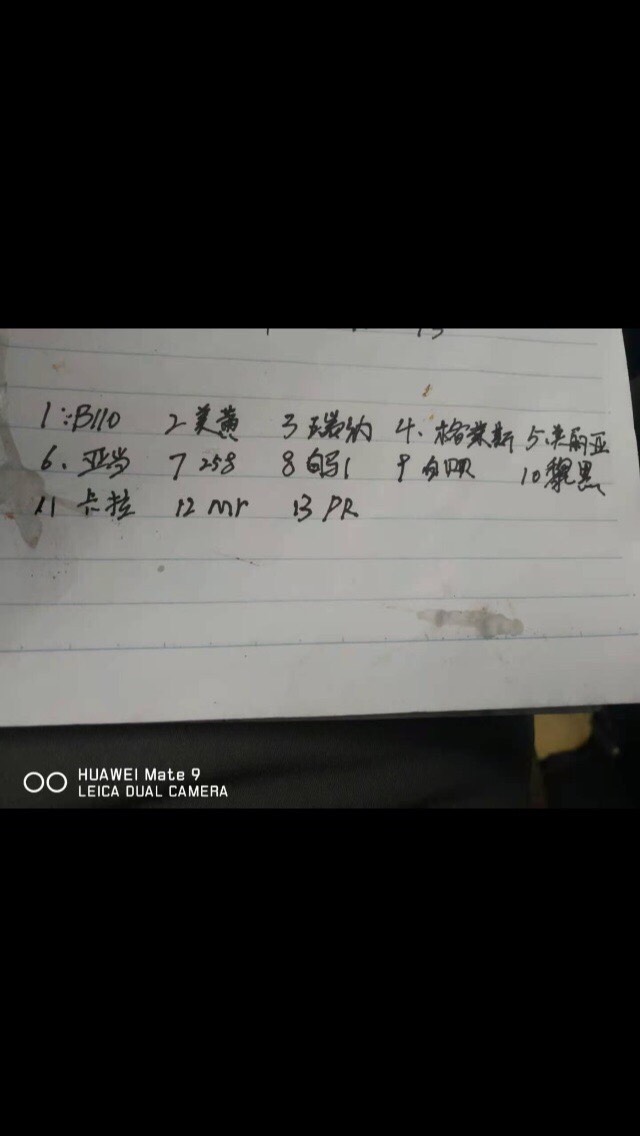 1: B110 2 美黄 3 瑞纳 4. 格莱斯 5. 美丽亚
6. 亚当 7 258 8 白马1 9 10 貌黑
11 卡拉 12 mr 13 PR
HUAWEI Mate 9
LEICA DUAL CAMERA